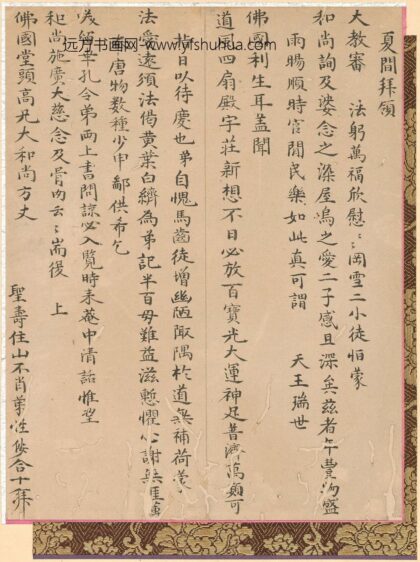 远方书画网-www.yfshuhua.com
夏間拜領
大教審　法躬萬福欣慰〻岡雪二小徒怕蒙
和尚詢及婆念之深屋烏之愛二子感且深矣茲者年豐洵盛
雨暘順時官閒民樂如此真可謂　天王瑞世
佛國利生耳蓋聞
道風四扇殿宇莊新想不日必放百寶光大運神足普濟萬類可
指日以待慶也弟自愧馬齒徒增幽陋隅於道無補荷蒙
法愛還須法偈黃葉白為弟記半百母難益滋慙懼心謝無涯
唐物數種少申鄙供希乞
笑留草孔令弟兩上書問諒必入覽時來菴中清話惟望
和尚施廣大慈念及骨肉云〻耑復　上
佛國堂頭高兄大和尚方丈
聖壽住山不肖弟性合十